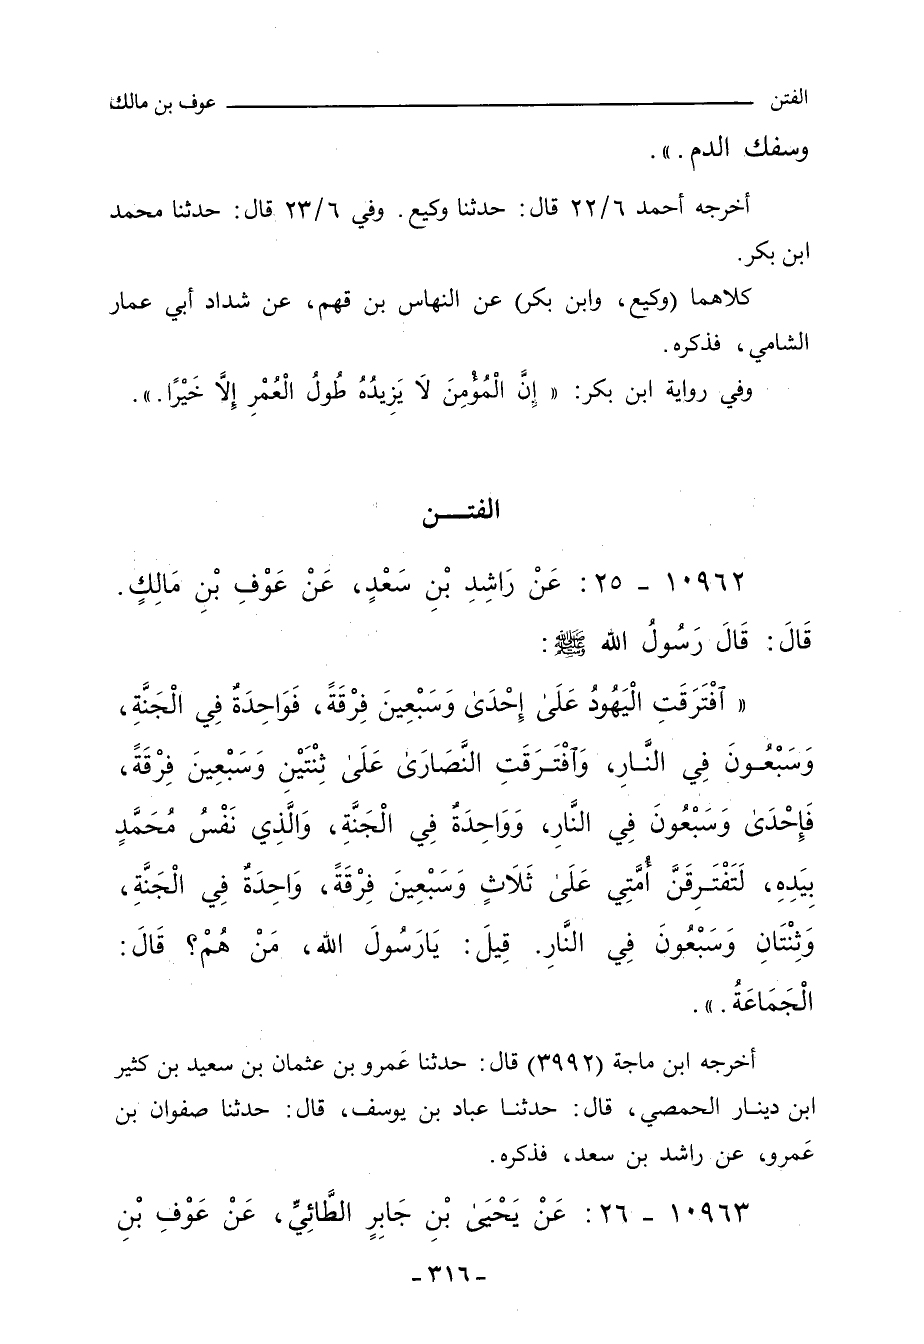 الفتن ـــــــ عوف بن مالك
وسفك الدم . » .
أخرجه أحمد ٢٢/٦ قال : حدثنا وكيع . وفي ٢٣/٦ قال : حدثنا محمد
ابن بكر .
كلاهما (وكيع ، وابن بكر) عن النهاس بن قهم ، عن شداد أبي عمار
الشامي ، فذكره .
وفي رواية ابن بكر : « إِنَّ الْمُؤْمِنَ لَا يَزِيدُهُ طُولُ الْعُمْرِ إِلَّا خَيْرًا . » .
الفتـــن
١٠٩٦٢ - ٢٥ : عَنْ رَاشِدِ بْنِ سَعْدٍ ، عَنْ عَوْفِ بْنِ مَالِكٍ .
قَالَ : قَالَ رَسُولُ الله ﷺ :
« آفْتَرَقَتِ الْيَهُودُ عَلَىٰ إِحْدَىٰ وَسَبْعِينَ فِرْقَةً ، فَوَاحِدَةٌ فِي الْجَنَّةِ ،
وَسَبْعُونَ فِي النَّارِ ، وَآفْتَرَقَتِ النَّصَارَىٰ عَلَىٰ ثِنْتَيْنِ وَسَبْعِينَ فِرْقَةً ،
فَإِحْدَىٰ وَسَبْعُونَ فِي النَّارِ ، وَوَاحِدَةٌ فِي الْجَنَّةِ ، وَالَّذِي نَفْسُ مُحَمَّدٍ
بِيَدِهِ ، لَتَفْتَرِقَنَّ أُمَّتِي عَلَىٰ ثَلَاثٍ وَسَبْعِينَ فِرْقَةً ، وَاحِدَةٌ فِي الْجَنَّةِ ،
وَثِنْتَانِ وَسَبْعُونَ فِي النَّارِ . قِيلَ : يَارَسُولَ الله ، مَنْ هُمْ؟ قَالَ :
الْجَمَاعَةُ . » .
أخرجه ابن ماجة (٣٩٩٢) قال : حدثنا عَمرو بن عثمان بن سعيد بن كثير
ابن دينار الحمصي ، قال : حدثنا عباد بن يوسف ، قال : حدثنا صفوان بن
عَمرو ، عن راشد بن سعد ، فذكره .
١٠٩٦٣ - ٢٦ : عَنْ يَحْيَىٰ بْنِ جَابِرٍ الطَّائِيِّ ، عَنْ عَوْفِ بْنِ
- ٣١٦ -